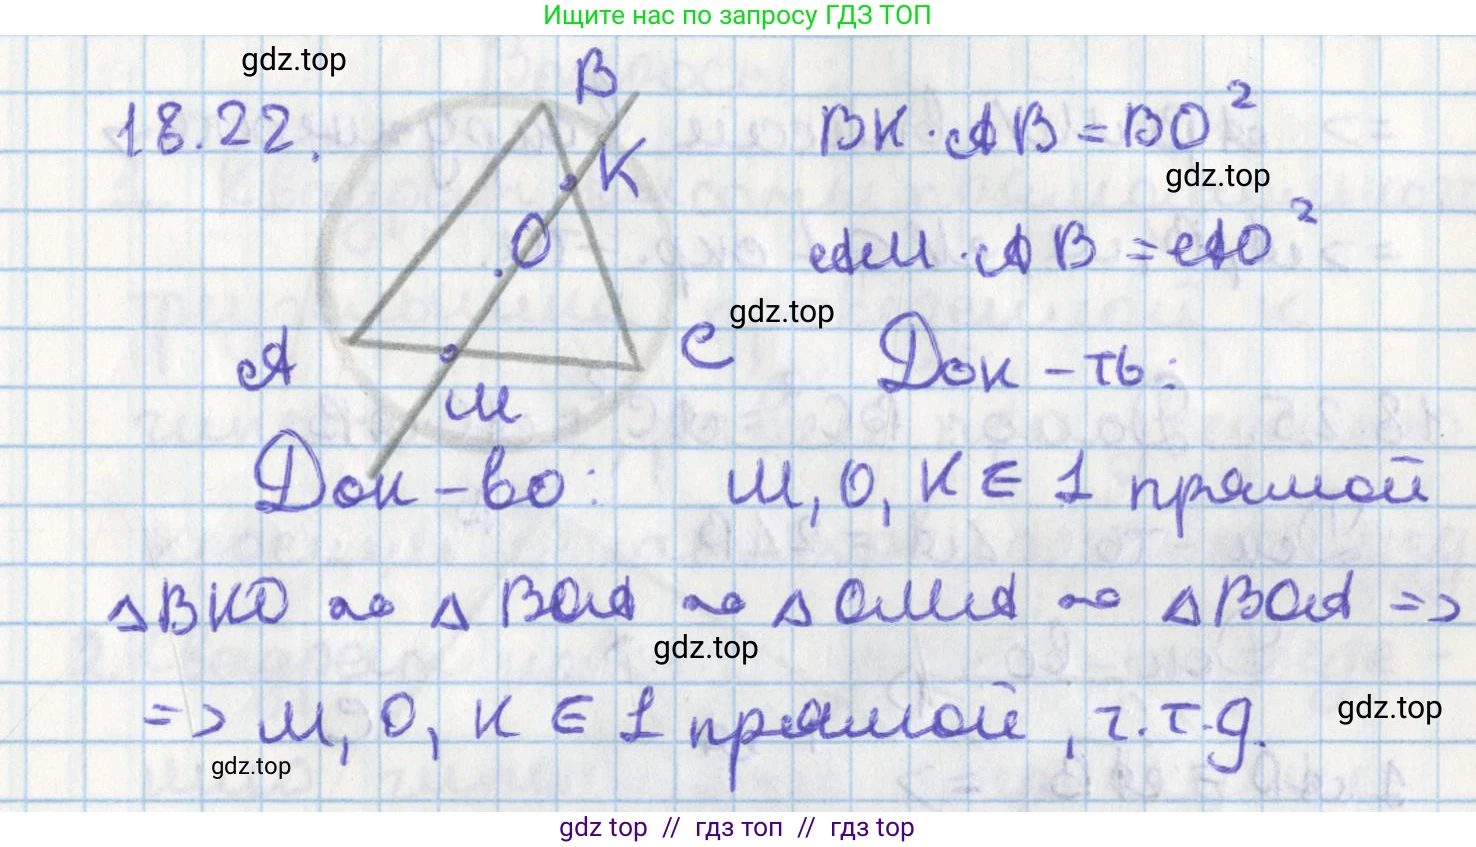 Ищите нас по запросу ГДЗ ТОП
gdz.top
18.22.
B
K
O
A
M
C
BK · AB = BO²
gdz.top
AM · AB = AO²
gdz.top
Док-ть:
Док-во: M, O, K ∈ 1 прямой
△BKO ∾ △BOA ∾ △OMA ∾ △BOA =>
gdz.top
=> M, O, K ∈ 1 прямой, ч.т.д.
gdz.top
gdz.top
gdz top // гдз топ // гдз top